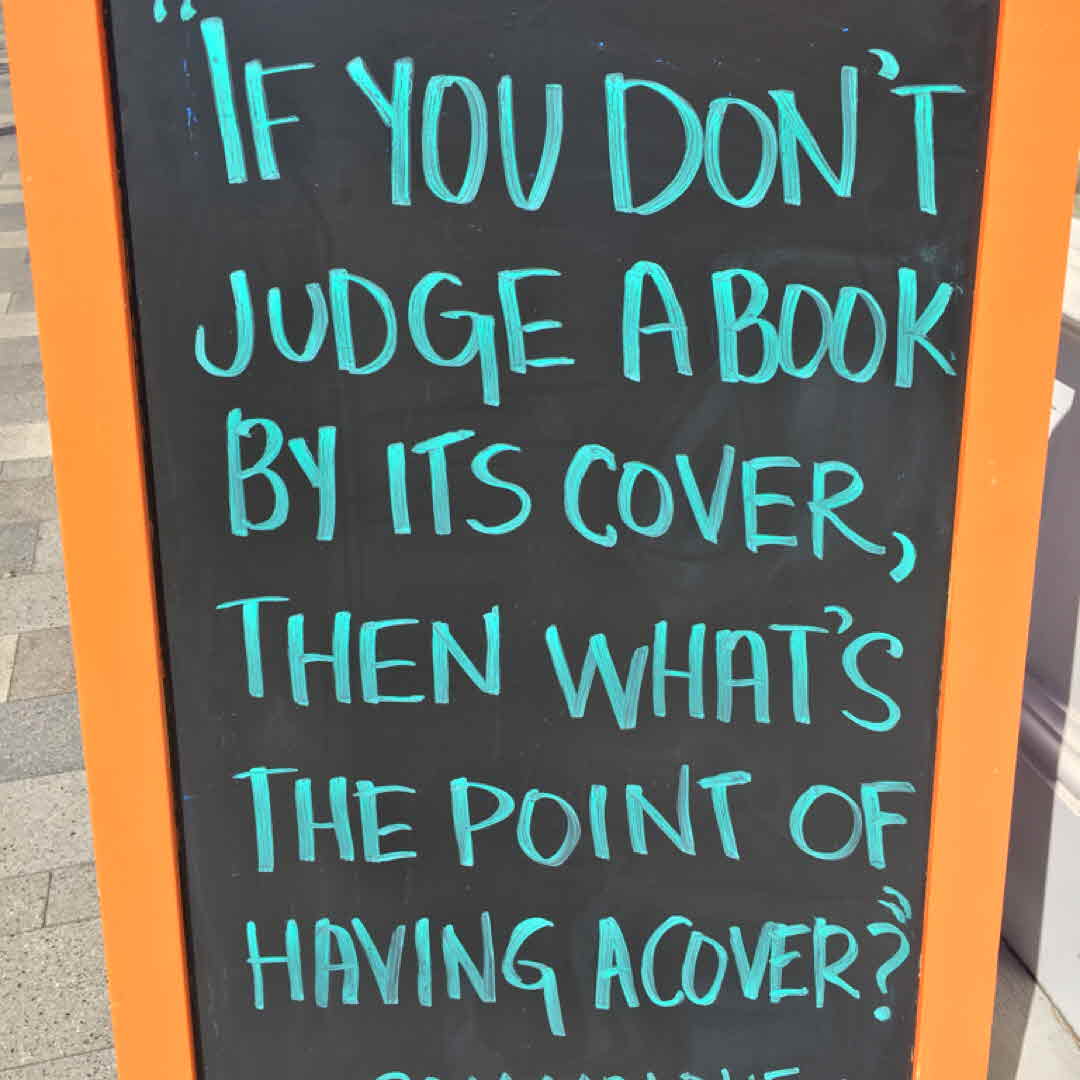 "IF YOU DON'T
JUDGE A BOOK
BY ITS COVER,
THEN WHAT'S
THE POINT OF
HAVING A COVER?"